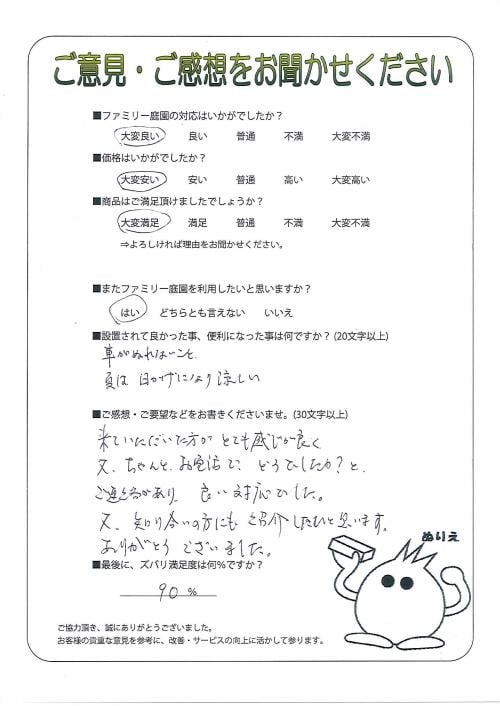 ご意見・ご感想をお聞かせください
■ファミリー庭園の対応はいかがでしたか？
大変良い 良い 普通 不満 大変不満
■価格はいかがでしたか？
大変安い 安い 普通 高い 大変高い
■商品はご満足頂けましたでしょうか？
大変満足 満足 普通 不満 大変不満
⇒よろしければ理由をお聞かせください。
■またファミリー庭園を利用したいと思いますか？
はい どちらとも言えない いいえ
■設置されて良かった事、便利になった事は何ですか？(20文字以上)
車がぬれないこと、
夏は 日かげになり 涼しい
■ご感想・ご要望などをお書きくださいませ。(30文字以上)
来ていただいた方が とても感じが良く
又、ちゃんと、お電話で、どうでしたか？と、
ご連絡があり、良い対応でした。
又、知り合いの方にも ご紹介したいと思います。
ありがとう ございました。
■最後に、ズバリ満足度は何％ですか？
90 %
ぬりえ
ご協力頂き、誠にありがとうございました。
お客様の貴重な意見を参考に、改善・サービスの向上に活かして参ります。